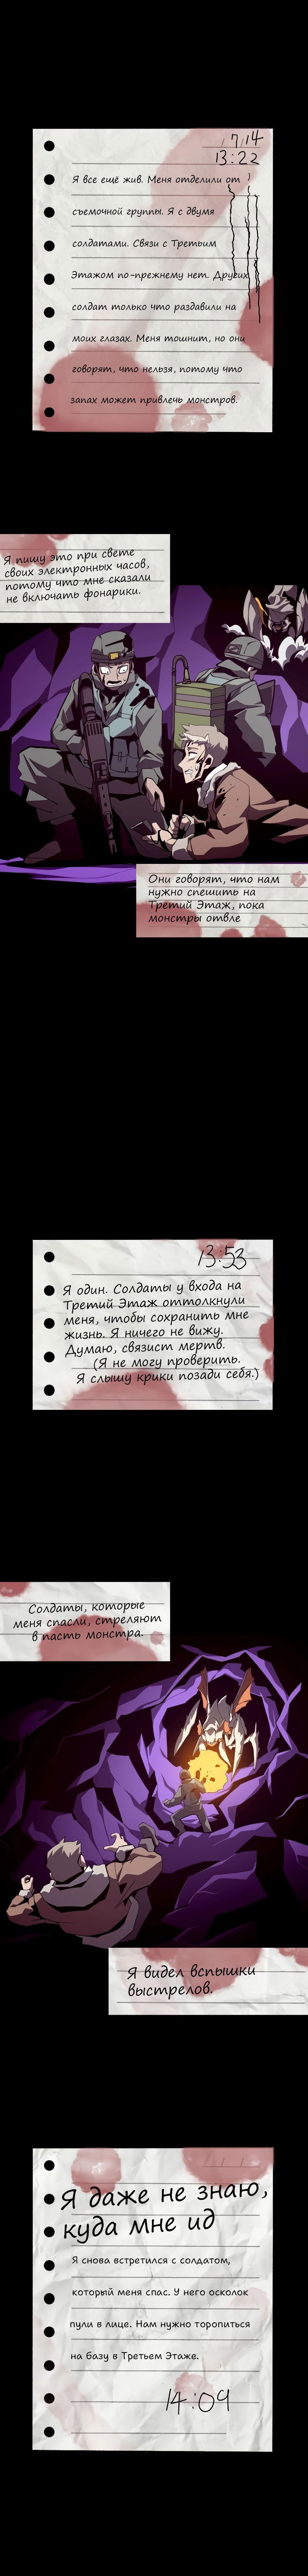 1/7/14
13:22
Я все ещё жив. Меня отделили от
съемочной группы. Я с двумя
солдатами. Связи с Третьим
Этажом по-прежнему нет. Других
солдат только что раздавили на
моих глазах. Меня тошнит, но они
говорят, что нельзя, потому что
запах может привлечь монстров.
Я пишу это при свете
своих электронных часов,
потому что мне сказали
не включать фонарики.
Они говорят, что нам
нужно спешить на
Третий Этаж, пока
монстры отвле
13:53
Я один. Солдаты у входа на
Третий Этаж оттолкнули
меня, чтобы сохранить мне
жизнь. Я ничего не вижу.
Думаю, связист мертв.
(Я не могу проверить.
Я слышу крики позади себя.)
Солдаты, которые
меня спасли, стреляют
в пасть монстра.
Я видел вспышки
выстрелов.
Я даже не знаю,
куда мне ид
Я снова встретился с солдатом,
который меня спас. У него осколок
пули в лице. Нам нужно торопиться
на базу в Третьем Этаже.
14:09